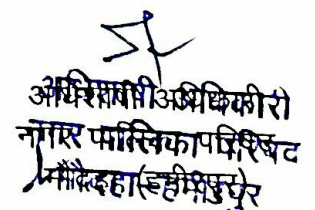 अधिशाषी अधिकारी
नगर पालिका परिषद
मौदहा (हमीरपुर)